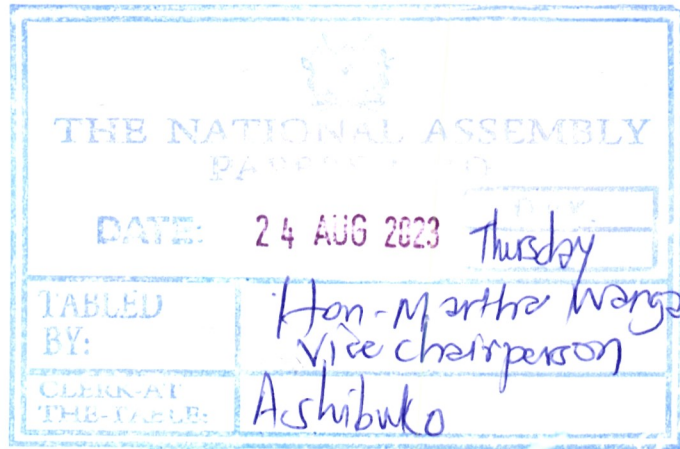 THE NATIONAL ASSEMBLY
PAPERS LAID
DATE: 24 AUG 2023 Thursday
DAY.
TABLED BY: Hon. Martha Wanga
Vice chairperson
CLERK-AT THE-TABLE: A.shibuko